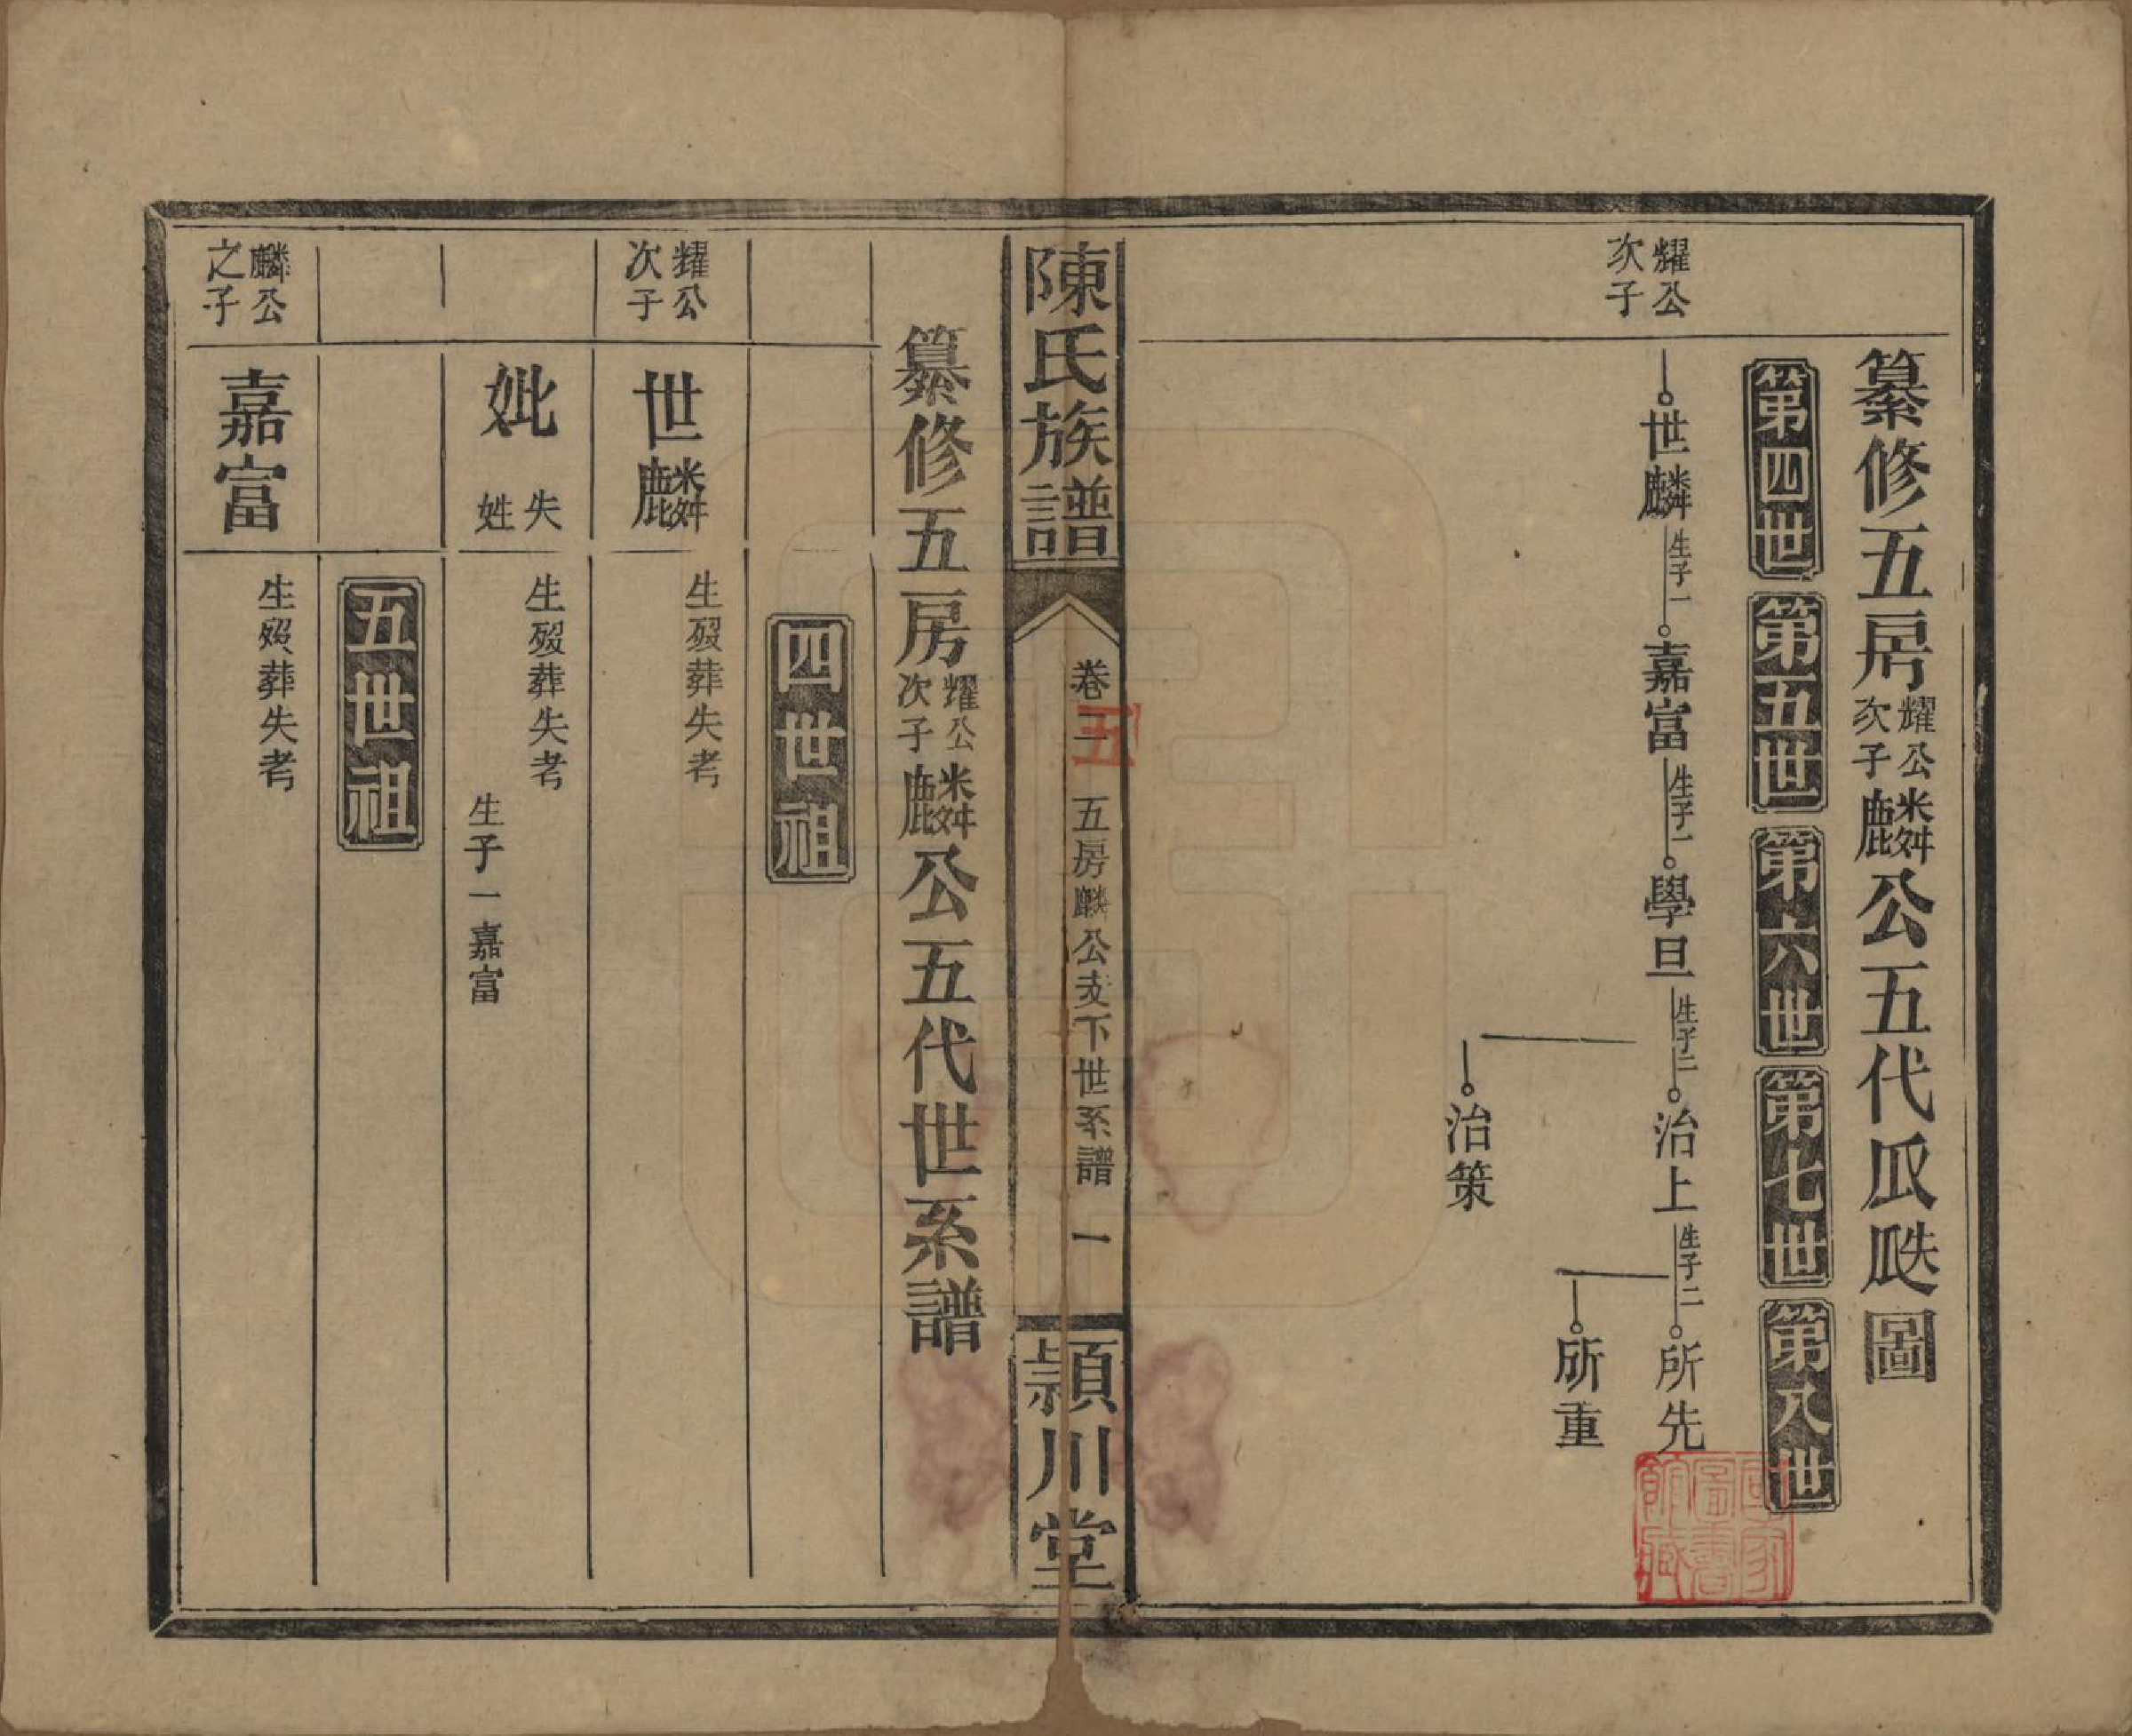 纂修五房耀公次子麟公五代瓜瓞圖
第四世 第五世 第六世 第七世 第八世
耀公次子
世麟 生子一 嘉富 生子一 學旦 生子二 治上 生子二 所先
所重
治策
國家圖書館藏
陳氏族譜 卷二 五 五房麟公支下世系譜 一 潁川堂
纂修五房耀公次子麟公五代世系譜
四世祖
耀公次子 世麟 生殁葬失考
妣 失姓 生殁葬失考
生子一嘉富
五世祖
麟公之子 嘉富 生殁葬失考